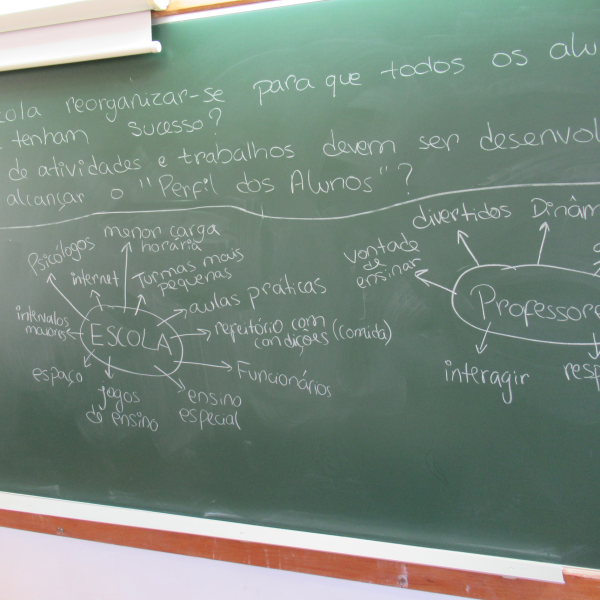 cola reorganizar-se para que todos os alu
tenham sucesso?
de atividades e trabalhos devem ser desenvol
alcançar o "Perfil dos Alunos"?
Psicólogos
menor carga
horária
internet
Turmas mais
pequenas
aulas práticas
intervalos
maiores
ESCOLA
refeitório com
condições (comida)
espaço
jogos
de ensino
ensino
especial
Funcionários
divertidos
Dinâm
vontade
de
ensinar
Professore
interagir
resp